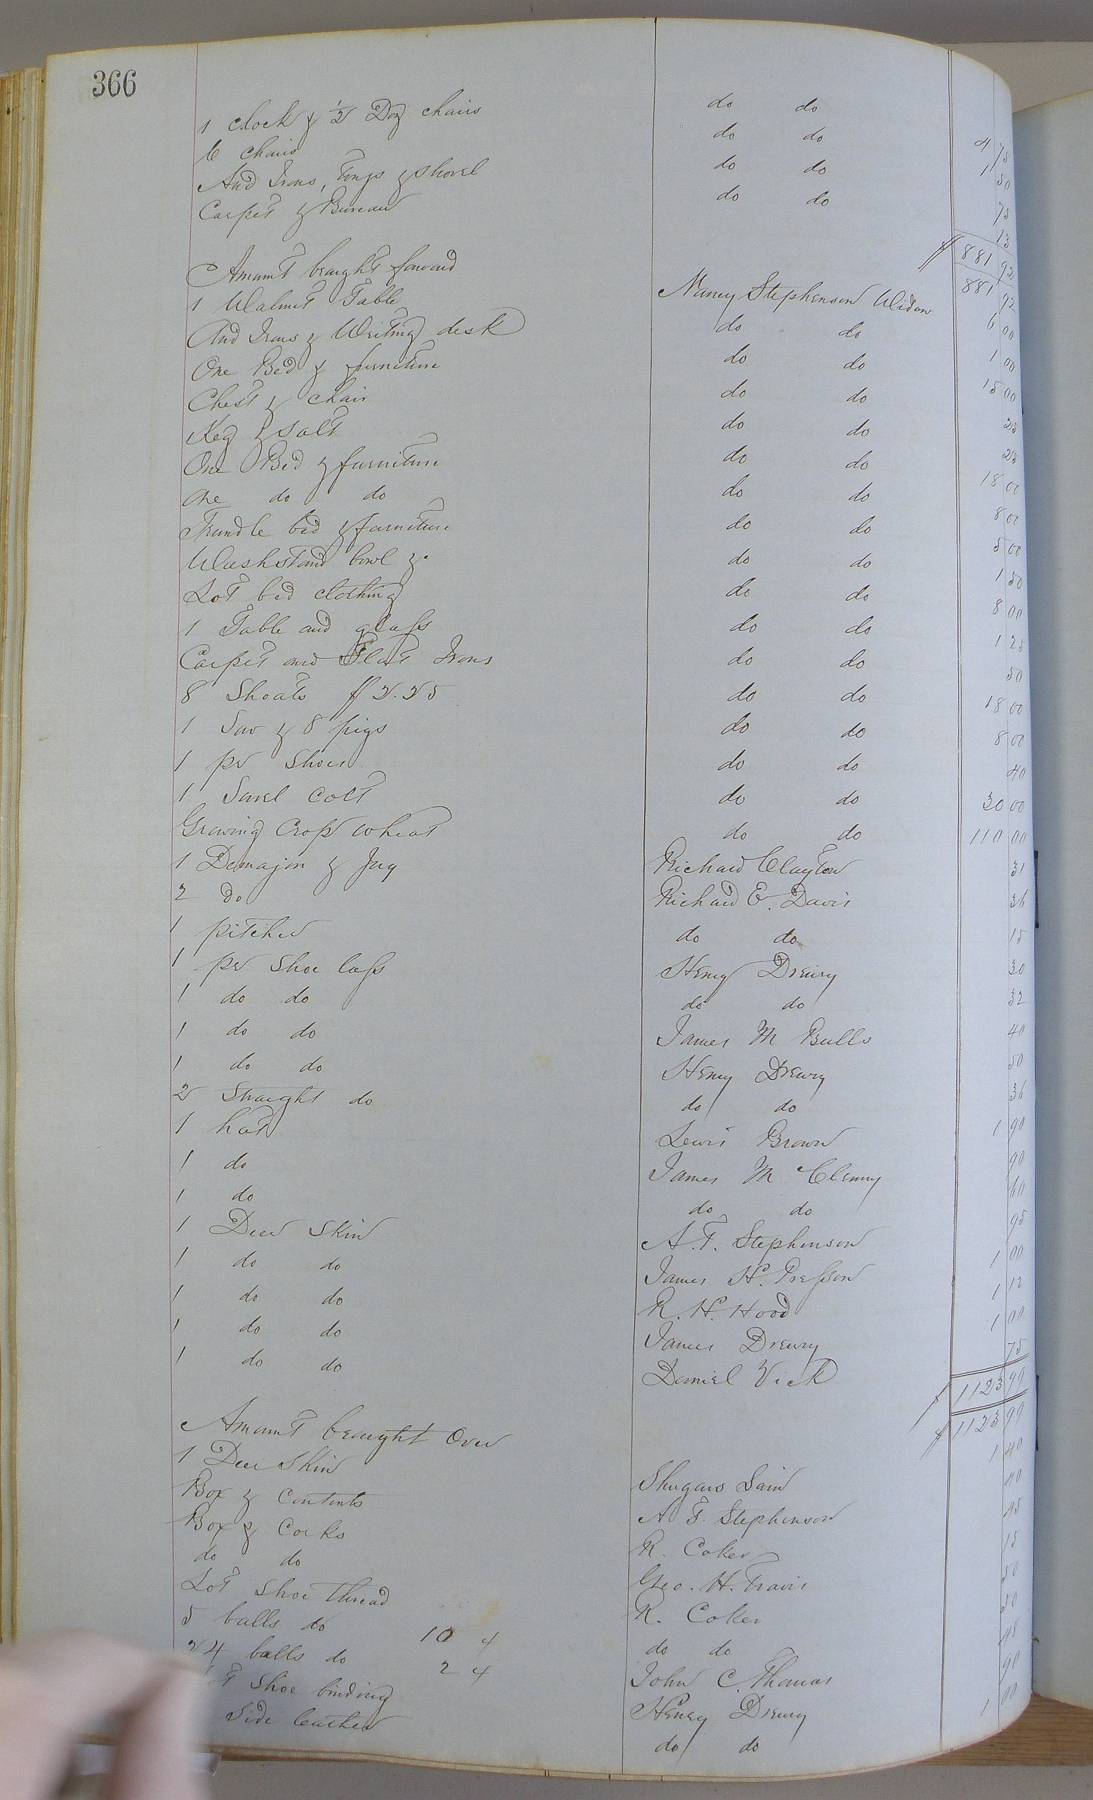 366
1 clock & 1/2 Doz chairs do do 4 75
6 chairs do do 1 50
And Irons, Tongs & Shovel do do 75
Carpet & Bureau do do 13
$ 881 92
Amount brought forward 881 92
1 Walnut Table Nancy Stephenson Widow 6 00
And Irons & Writing desk do do 1 00
One Bed & furniture do do 15 00
Chest & chair do do 25
Keg & Salt do do 25
One Bed & furniture do do 18 00
One do do do do 8 00
Trundle bed & furniture do do 5 00
Washstand bowl &. do do 1 50
Lot bed clothing do do 8 00
1 Table and glass do do 1 25
Carpet and Flat Irons do do 50
8 Shoats $2.25 do do 18 00
1 Sow & 8 pigs do do 8 00
1 pr Shoes do do 40
1 Sorrel Colt do do 30 00
Growing Crop wheat do do 110 00
1 Demajon & Jug Richard Clayton 31
2 do Richard E. Davis 36
1 pitcher do do 15
1 pr Shoe lass Henry Drewry 30
1 do do do do 32
1 do do James M Bulls 40
1 do do Henry Drewry 50
2 Straight do do do 36
1 hat Lewis Brown 1 90
1 do James M Clenny 90
1 do do do 60
1 Deer Skin A. T. Stephenson 95
1 do do James H. Presson 1 00
1 do do R. H. Hood 1 12
1 do do James Drewry 1 00
1 do do Daniel Vick 75
$ 1123 99
Amount brought Over $ 1123 99
1 Deer Skin Shugars Lain 1 40
Box & Contents A T. Stephenson
Box & Corks R. Coker
do do Geo. H. Travis 15
Lot Shoe thread R. Coker 50
5 balls do 10 4 do do 50
24 balls do 2 4 John C. Thomas
Shoe binding Henry Drewry 90
Side leather do do 1 00